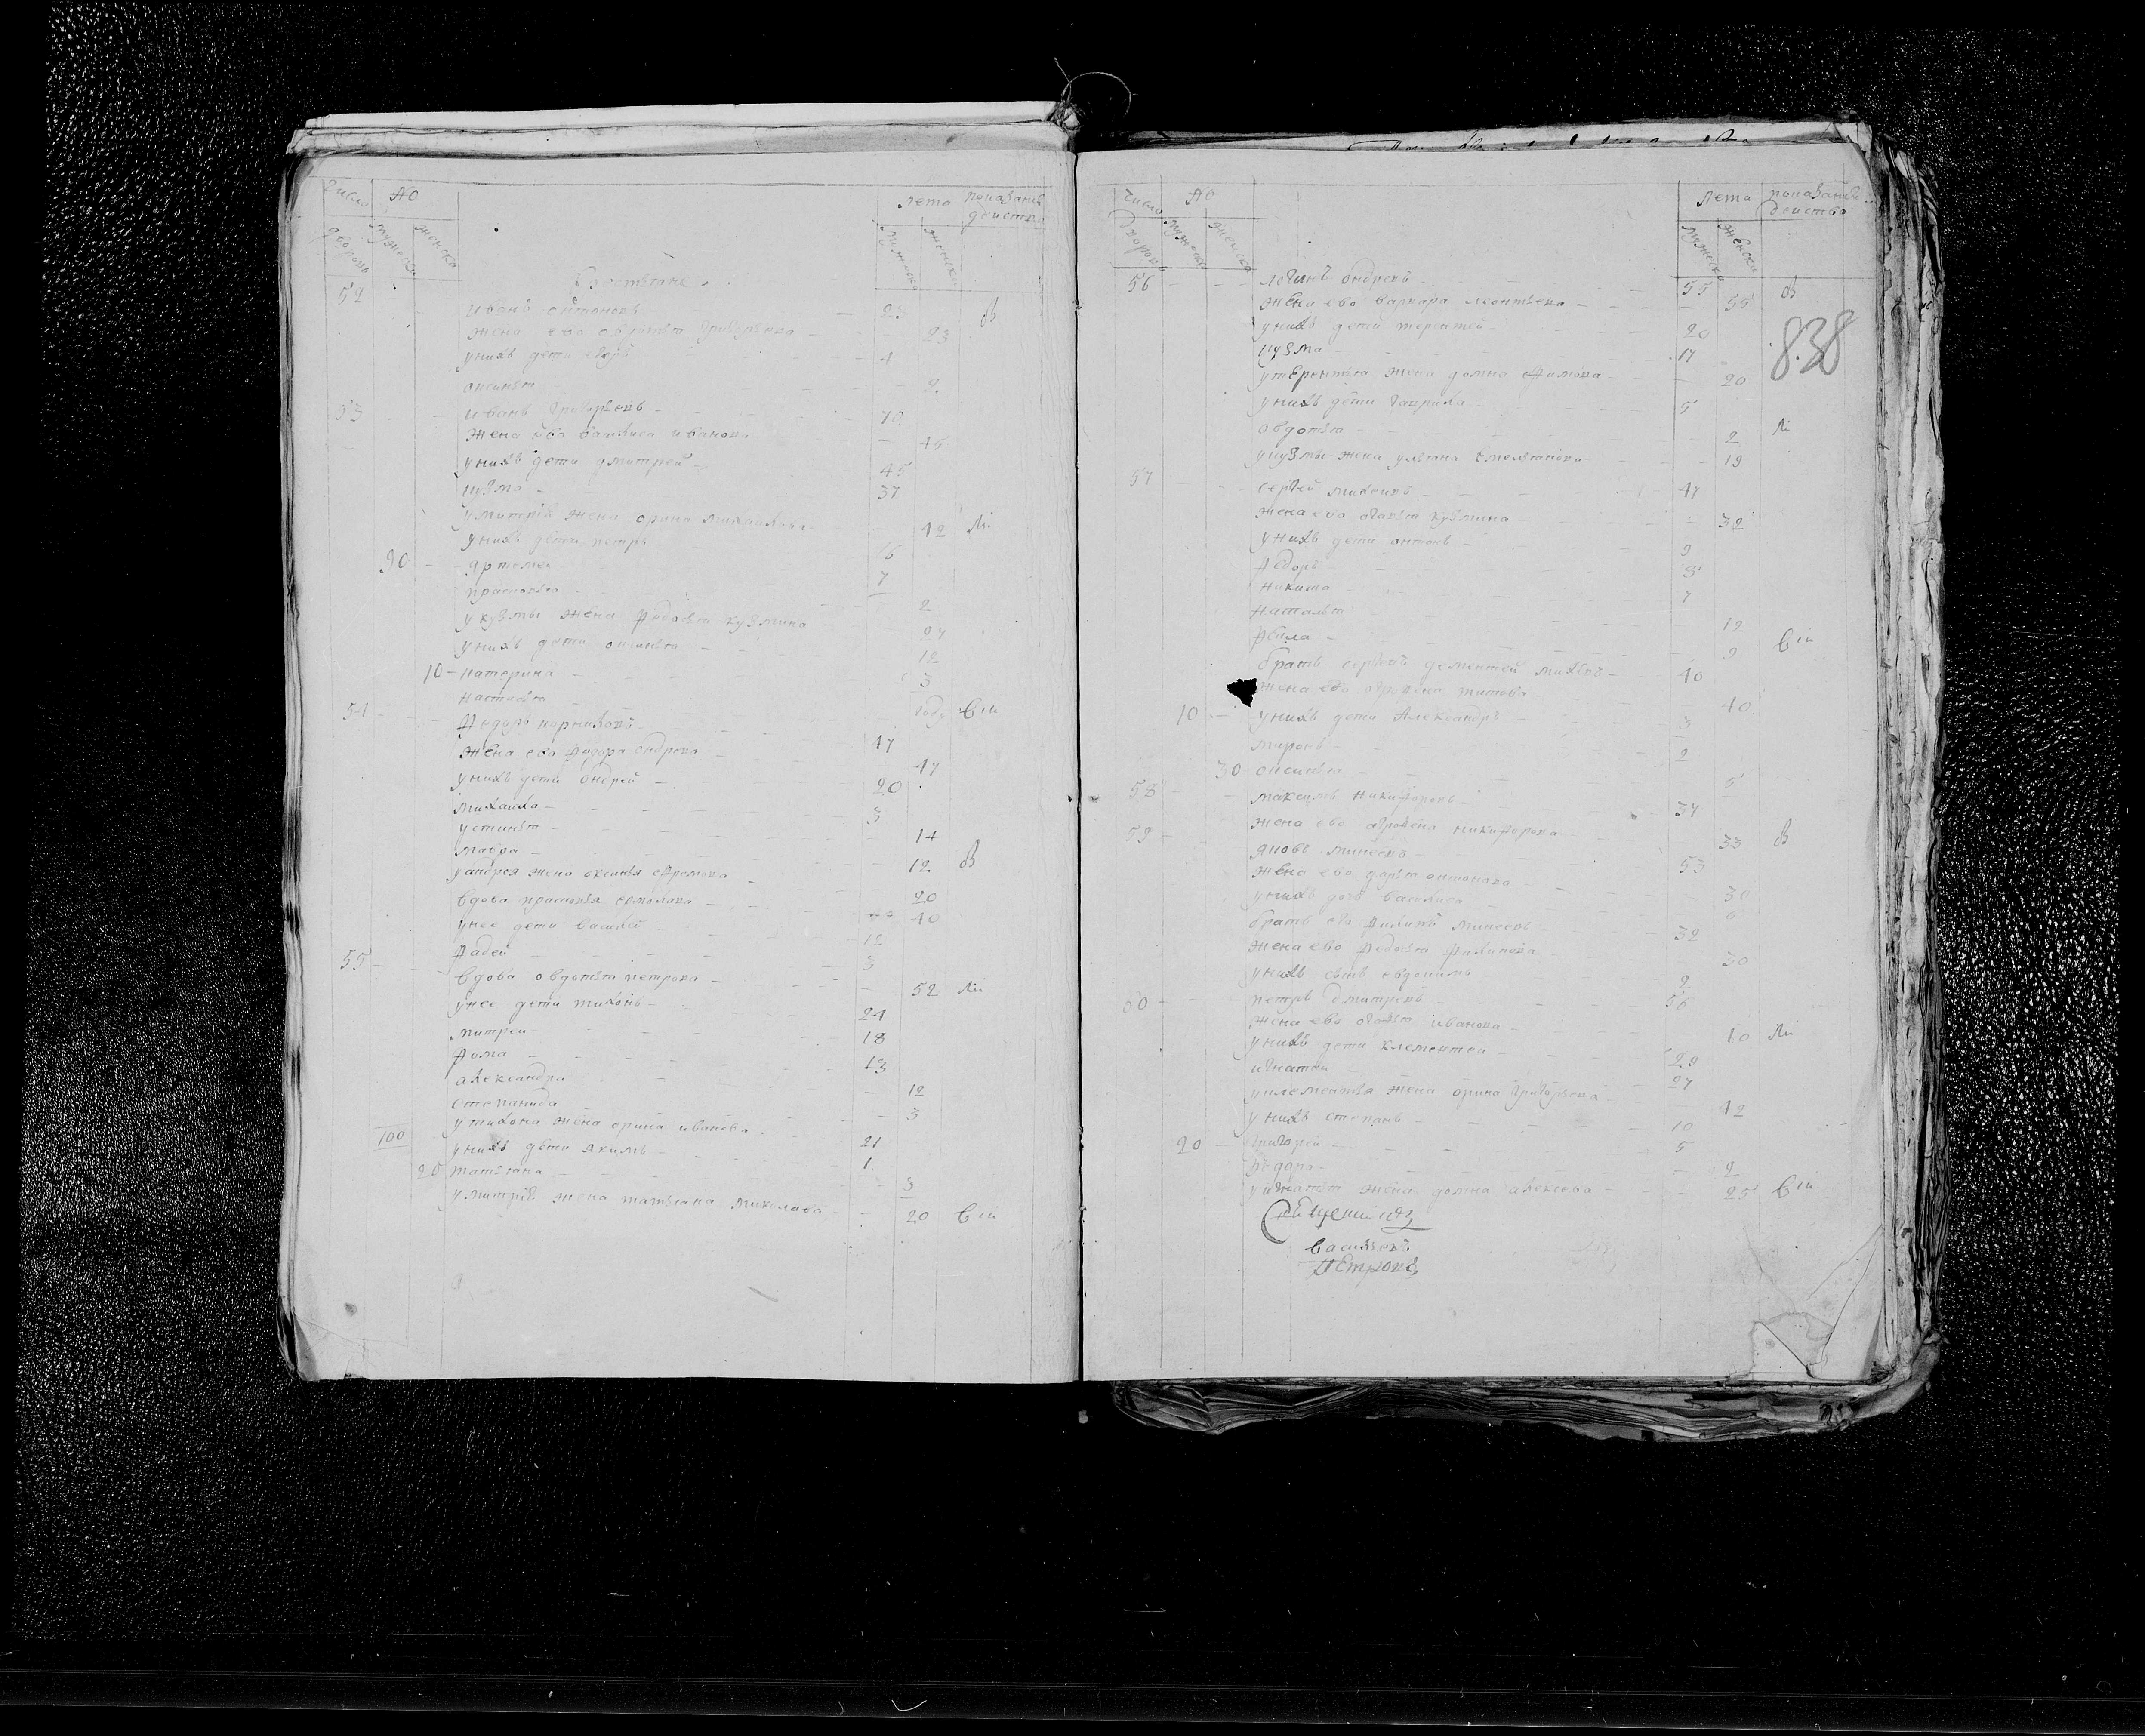 число АО лета показание действа
дворовъ мужеска женска мужеска женска
Крестьяне
52 Иванъ онтоновъ 25 в
жена ево овдотья Григорьева 23
унихъ дети егоръ 4
оксинья 2
53 иванъ Григорьевъ 70
жена ево василиса иванова 45
унихъ дети дмитрей 45
кузма 37
умитрія жена орина михаилова 42 ли
унихъ дети петръ 16
90 Артемеи 7
прасковья 2
укузмы жена Федосья кузмина 27
унихъ дети оксинья 12
10 катерина 3
настасья году сіи
54 Федоръ корниловъ 47
жена ево федора ондреева 47
унихъ дети Ондрей 20
михаило 3
устинья 14
мавра 12 в
уандрея жена оксинья ефремова 20
вдова прасковья ермолаева 40
унее дети василей 12
Фадей 3
55 вдова овдотья петрова 52 ли
унее дети тихонъ 24
митреи 18
фома 13
александра 12
степанида 3
утихона жена орина иванова 21
100 унихъ дети якимъ 1
20 татьяна 3
умитрія жена татьяна миколаева 20 сіи
число АО лета показание действа
дворовъ мужеска женска мужеска женска
56 логинъ ондреевъ 55 в
жена ево варвара леонтьева 55
838
унихъ дети терентей 20
кузма 17
утерентья жена домна Фомова 20
унихъ дети гаврила 5
овдотья 2 ли
укузмы жена ульяна емельянова 19
57 сергей михеевъ 47
жена ево огафья кузмина 32
унихъ дети онтонъ 9
федоръ 8
никита 7
наталья 12
фекла 9 сіи
братъ сергеевъ дементей михеевъ 40
жена ево огрофена титова 40
10 унихъ дети Александръ 3
миронъ 2
30 оксинья 5
58 максимъ никифоровъ 37
жена ево огрофена никифорова 33 в
59 яковъ минеевъ 53
жена ево дарья онтонова 30
унихъ дочь василиса 6
братъ ево филипъ минеевъ 32
жена ево федосья филипова 30
унихъ сынъ евдокимъ 2
60 петръ дмитревъ 56
жена ево огафья иванова 10 ли
унихъ дети клементеи 29
игнатеи 27
уклементья жена орина григорьева 42
унихъ степанъ 10
20 григорей 5
федора 2
уигнатья жена домна алексеева 25 сіи
Священникъ
Василей
Петровъ